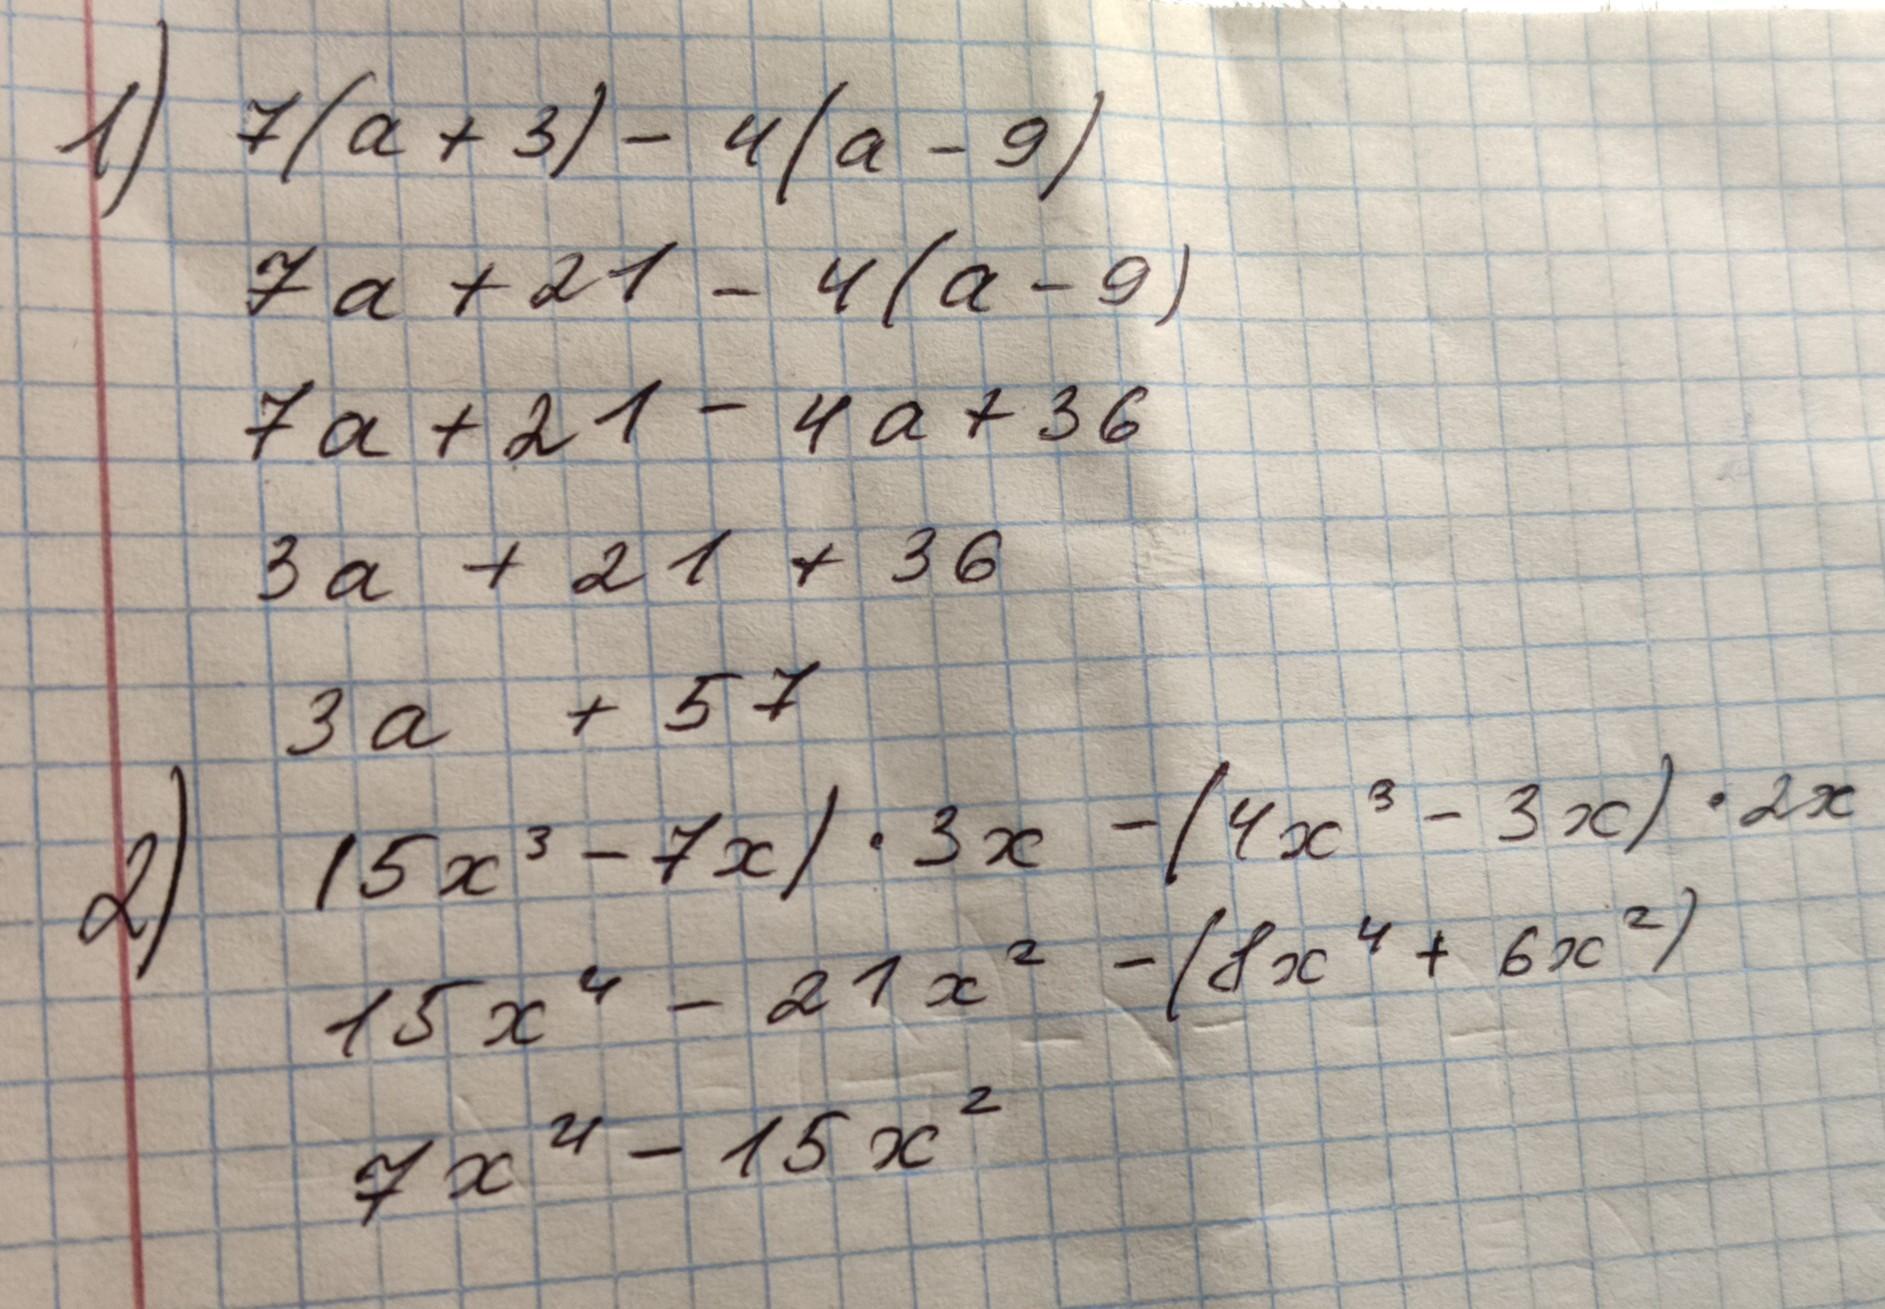 1) 7(a + 3) - 4(a - 9)
7a + 21 - 4(a - 9)
7a + 21 - 4a + 36
3a + 21 + 36
3a + 57
2) (5x³ - 7x) · 3x - (4x³ - 3x) · 2x
15x⁴ - 21x² - (8x⁴ + 6x²)
7x⁴ - 15x²